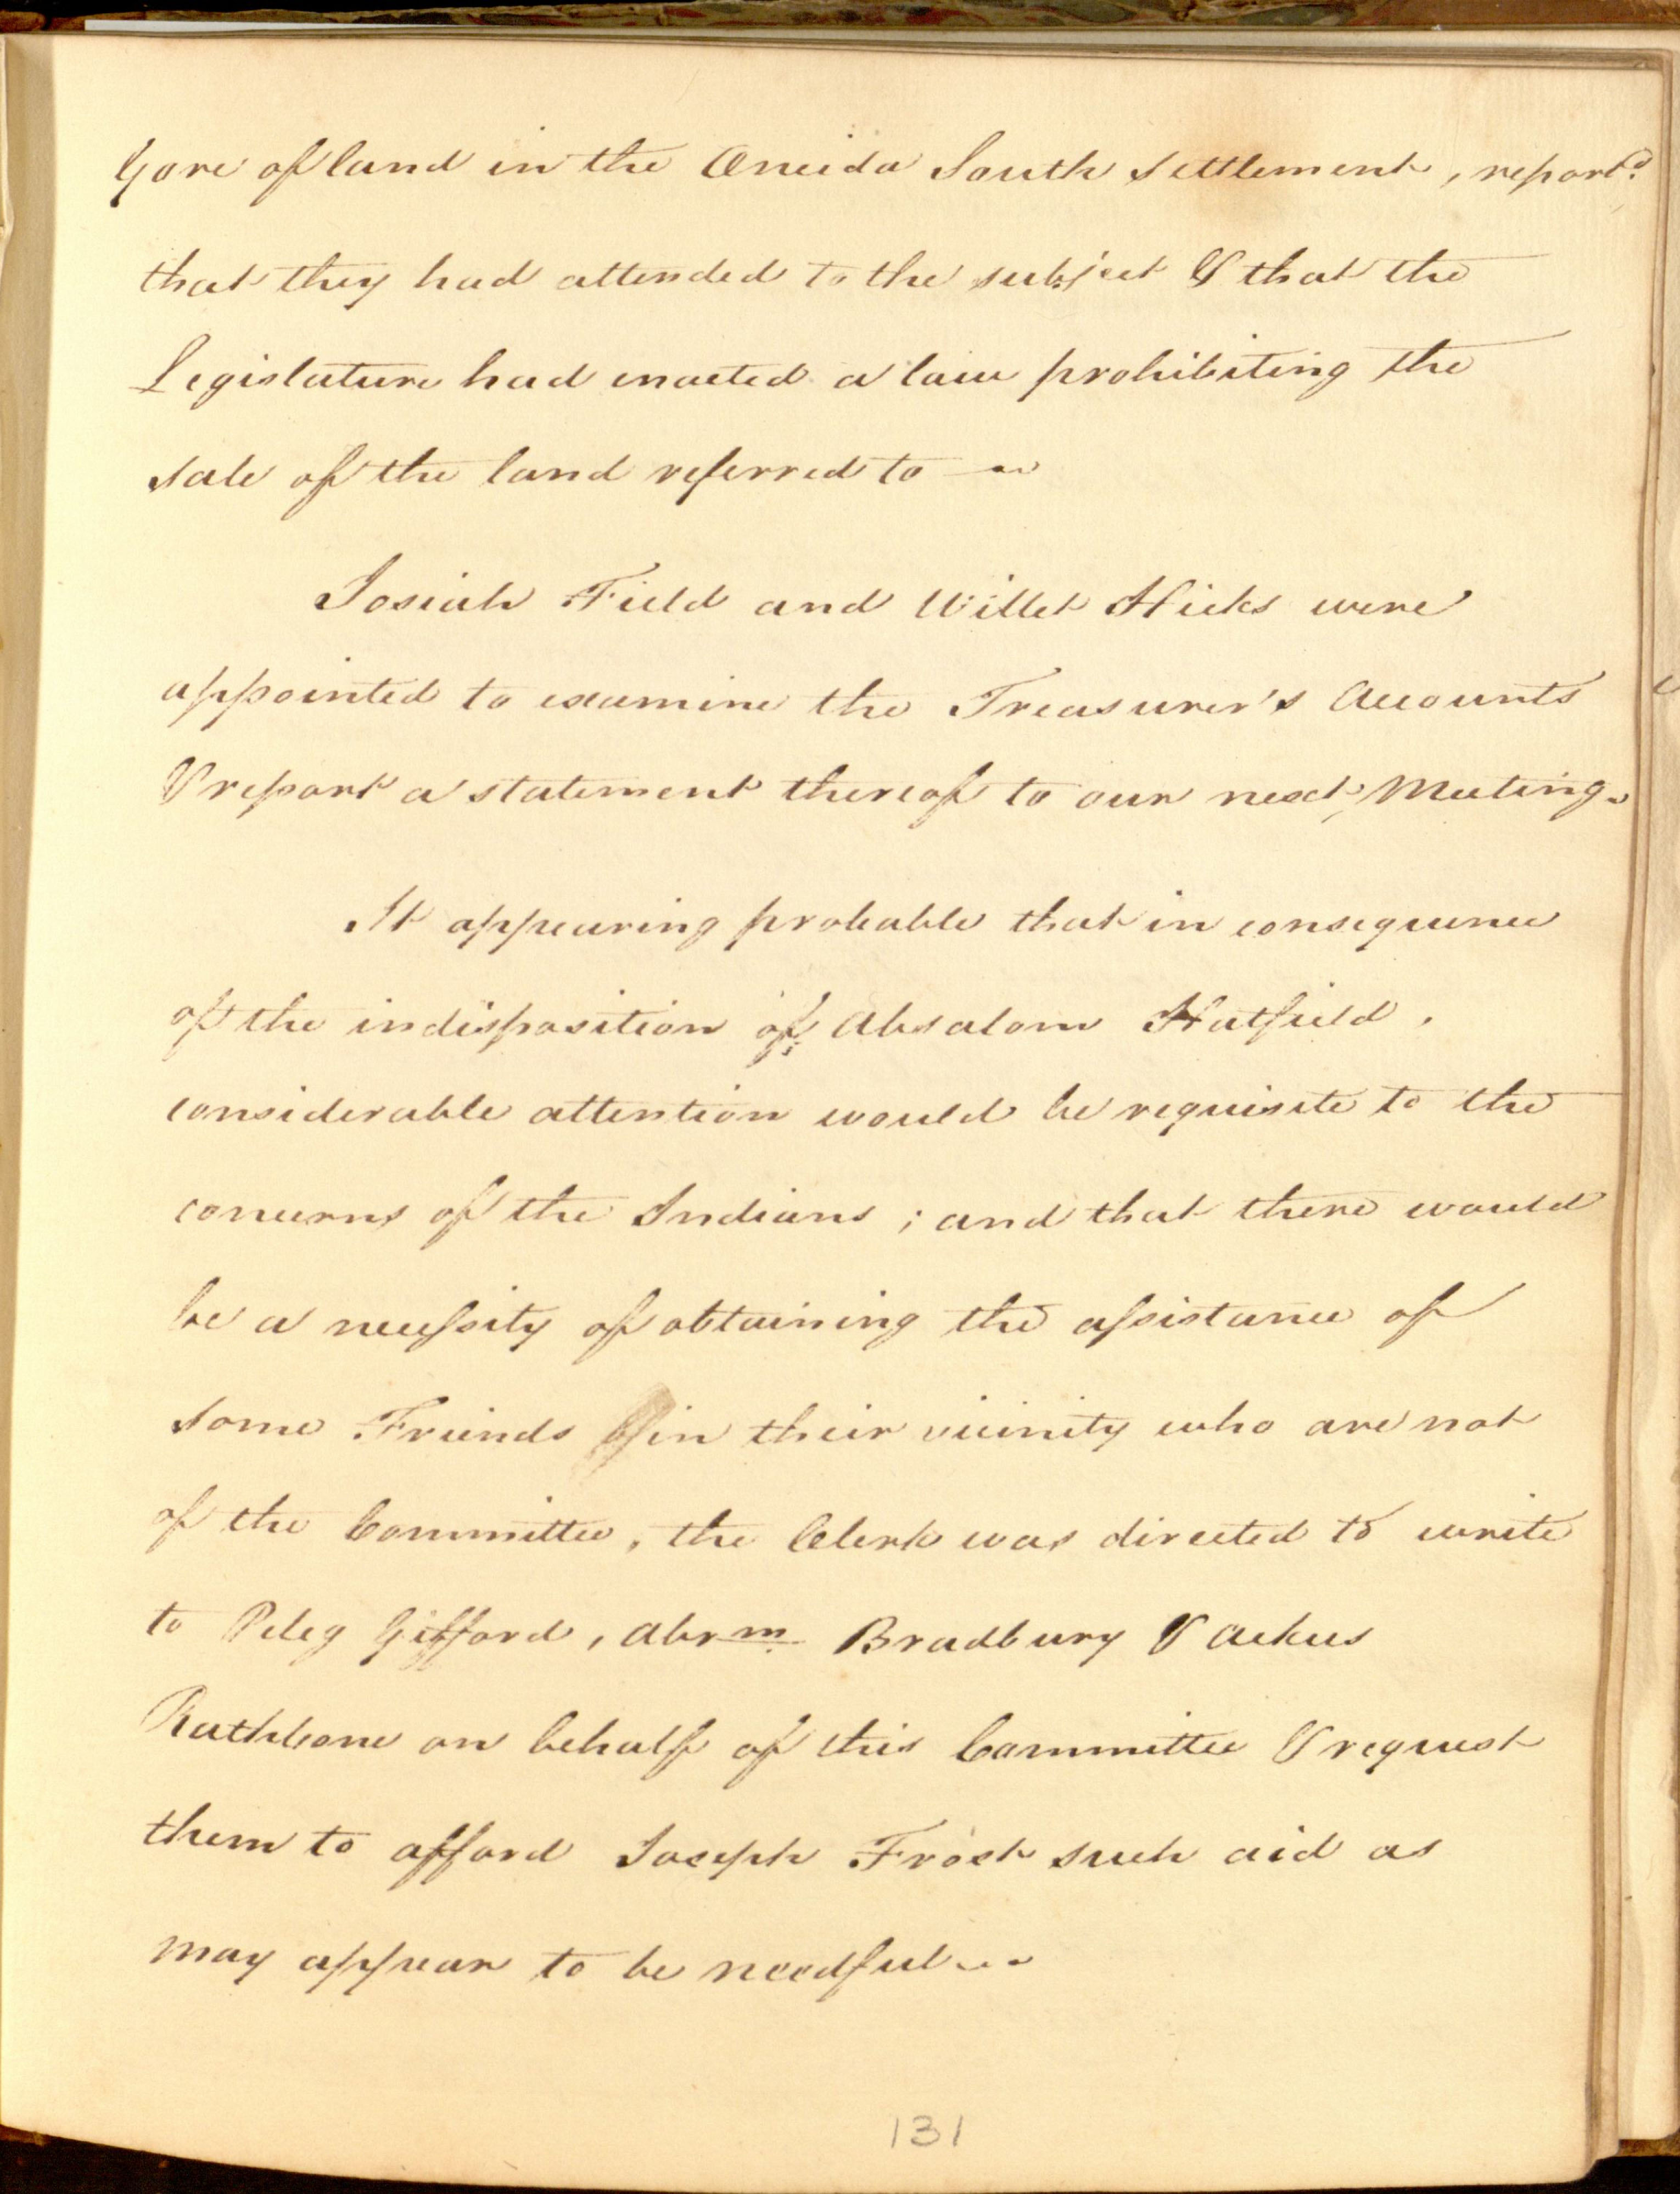 Gore of land in the Oneida South Settlement, report.d
that they had attended to the subject & that the
Legislature had enacted a law prohibiting the
sale of the land referred to —
Josiah Field and Willet Hicks were
appointed to examine the Treasurer's Accounts
& report a statement thereof to our next Meeting.
It appearing probable that in consequence
of the indisposition of Absalom Hatfield,
considerable attention would be requisite to the
concerns of the Indians; and that there would
be a necessity of obtaining the assistance of
some Friends in their vicinity who are not
of the Committee, the Clerk was directed to write
to Peleg Gifford, Abrm. Bradbury & Ackus
Rathbone on behalf of this Committee & request
them to afford Joseph Frost such aid as
may appear to be needful
131